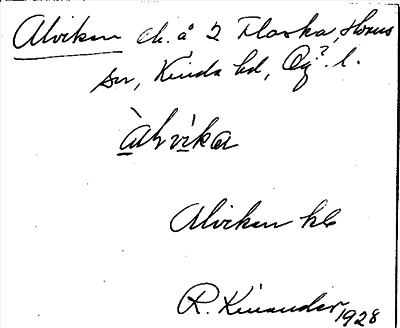 Alviken ch. å 2 Flaska, Horns
sn, Kinda hd, Ög. l.
àlvìka
Alviken hb
R. Kinander 1928